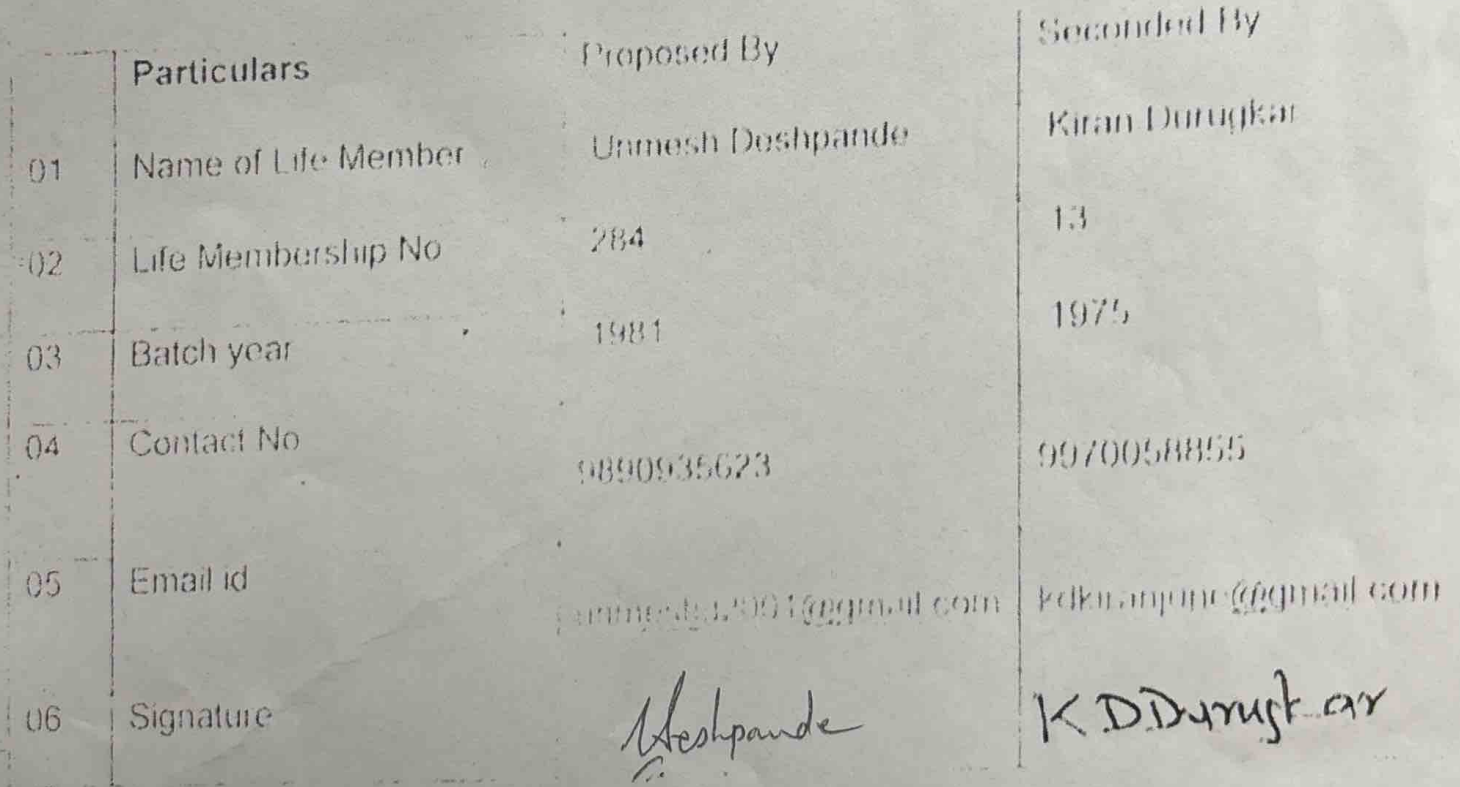 Particulars Proposed By Seconded By
01 Name of Life Member Unmesh Deshpande Kiran Durugkar
02 Life Membership No 284 13
03 Batch year 1981 1975
04 Contact No 9890935623 9970058855
05 Email id kdkiranjune@gmail.com
06 Signature Deshpande K D Durugkar